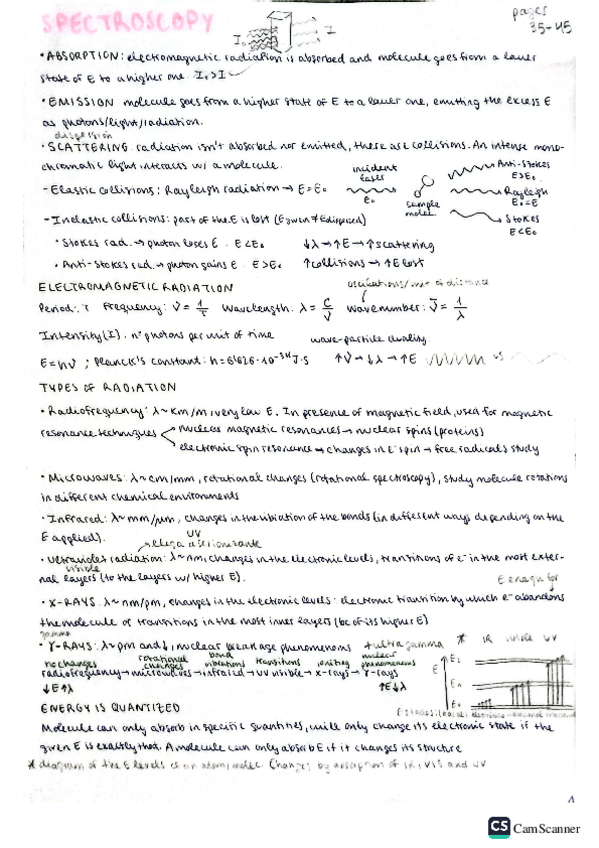 SPECTROSCOPY
I₀ I
pages
35-45
• ABSORPTION: electromagnetic radiation is absorbed and molecule goes from a lower
state of E to a higher one. I₀ > I
• EMISSION molecule goes from a higher state of E to a lower one, emitting the excess E
as photons/light/radiation.
• SCATTERING radiation isn't absorbed nor emitted, there are collisions. An intense mono-
chromatic light interacts w/ a molecule.
- Elastic collisions: Rayleigh radiation → E = E₀
incident
laser
E₀
sample
molec.
Anti-Stokes
E>E₀
Rayleigh
E₀=E
Stokes
E<E₀
- Inelastic collisions: part of the E is lost (E given ≠ E dispersed)
• Stokes rad. → photon loses E E<E₀ ↓λ → ↑E → ↑scattering
• Anti-Stokes rad. → photon gains E E>E₀ ↑collisions → ↑E lost
ELECTROMAGNETIC RADIATION
Period: τ Frequency: ν = 1/τ Wavelength: λ = c/ν wavenumber: ν̄ = 1/λ
Intensity (I). nº photons per unit of time wave-particle duality
E = hν ; Planck's constant: h = 6'626·10⁻³⁴ J·s ↑ν → ↓λ → ↑E vs
TYPES OF RADIATION
• Radiofrequency: λ~km/m, very low E. In presence of magnetic field, used for magnetic
resonance techniques
nucleos magnetic resonances → nuclear spins (proteins)
electronic spin resonance → changes in e⁻ spin → free radicals study
• Microwaves: λ~cm/mm, rotational changes (rotational spectroscopy), study molecule rotations
in different chemical environments
• Infrared: λ~mm/µm, changes in the vibration of the bonds (in different ways depending on the
E applied).
UV
• Ultraviolet radiation: λ~nm, changes in the electronic levels, transitions of e⁻ in the most exter-
visible
nal layers (to the layers w/ higher E).
• X-RAYS. λ~nm/pm, changes in the electronic levels: electronic transition by which e⁻ abandons
the molecule or transitions in the most inner layers (bc of its higher E)
gamma
• γ-RAYS: λ~pm and ↓, nuclear breakage phenomenons
no changes rotational changes bond vibrations transitions ioniting nuclear phenomenons
radiofrequency → microwaves → infrared → UV visible → x-rays → γ-rays
↓E↑λ ↑E↓λ
ENERGY IS QUANTIZED
Molecule can only absorb in specific quantities, will only change its electronic state if the
given E is exactly that. A molecule can only absorb E if it changes its structure
* diagram of the E levels of an atom/molec. Changes by absorption of IR, VIS and UV
CS CamScanner